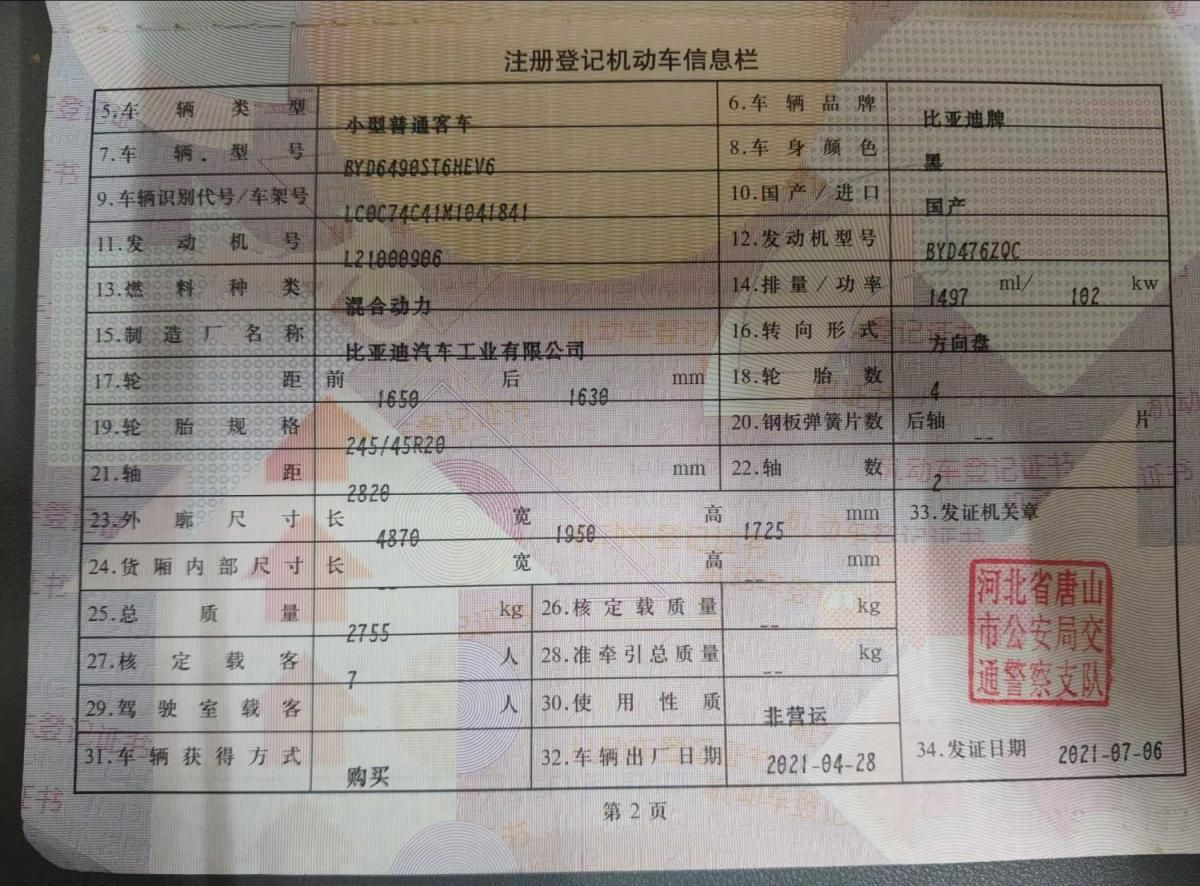 注册登记机动车信息栏
5.车辆类型 小型普通客车 6.车辆品牌 比亚迪牌
7.车辆型号 BYD6490ST6HEV6 8.车身颜色 黑
9.车辆识别代号/车架号 LC0C74C41M1041841 10.国产/进口 国产
11.发动机号 L21000906 12.发动机型号 BYD476ZQC
13.燃料种类 混合动力 14.排量/功率 1497 ml/ 102 kw
15.制造厂名称 比亚迪汽车工业有限公司 16.转向形式 方向盘
17.轮距 前 1650 后 1630 mm 18.轮胎数 4
19.轮胎规格 245/45R20 20.钢板弹簧片数 后轴 -- 片
21.轴距 2820 mm 22.轴数 2
23.外廓尺寸 长 4870 宽 1950 高 1725 mm 33.发证机关章
24.货厢内部尺寸 长 -- 宽 高 -- mm
河北省唐山
市公安局交
通警察支队
25.总质量 2755 kg 26.核定载质量 -- kg
27.核定载客 7 人 28.准牵引总质量 -- kg
29.驾驶室载客 人 30.使用性质 非营运
31.车辆获得方式 购买 32.车辆出厂日期 2021-04-28 34.发证日期 2021-07-06
第2页